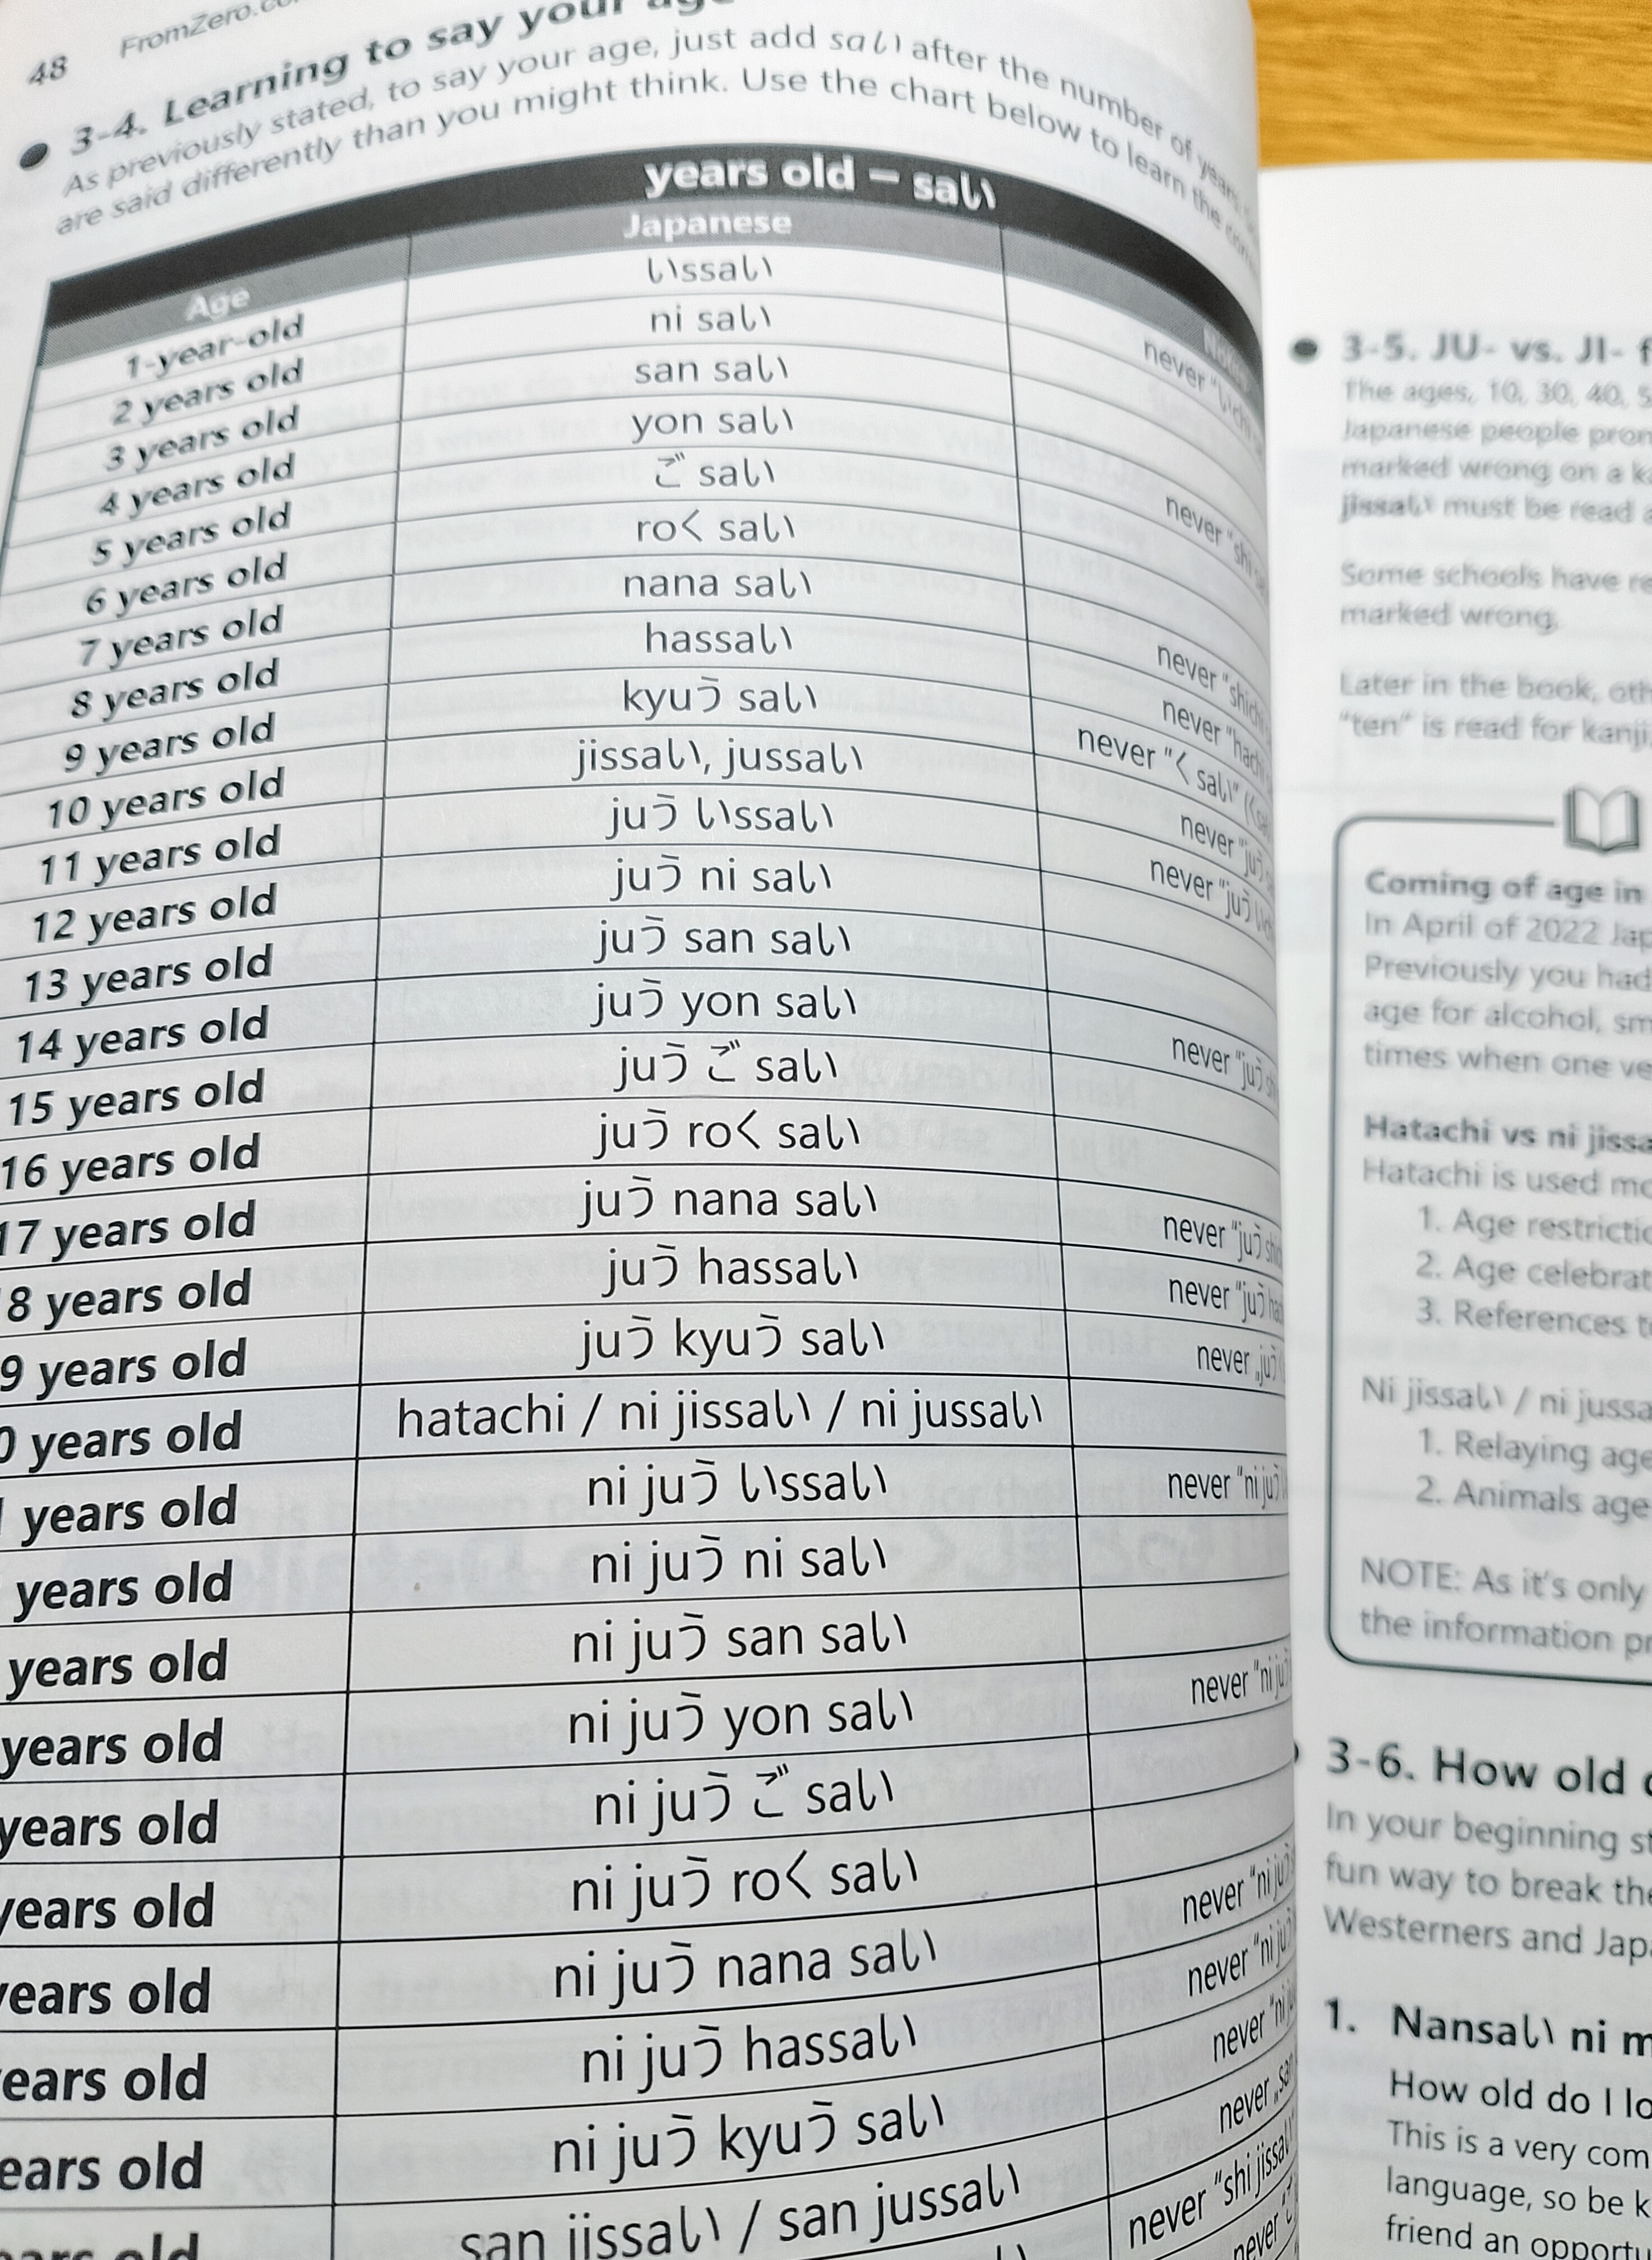 48 FromZero.co
3-4. Learning to say your age
As previously stated, to say your age, just add saい after the number of years.
are said differently than you might think. Use the chart below to learn the
years old – saい
Age Japanese
1-year-old いssaい never "いchi
2 years old ni saい
3 years old san saい
4 years old yon saい never "shi
5 years old ご saい
6 years old roく saい
7 years old nana saい never "shichi
8 years old hassaい never "hachi
9 years old kyuう saい never "く saい"
10 years old jissaい, jussaい never "juう
11 years old juう いssaい never "juう いchi
12 years old juう ni saい
13 years old juう san saい
14 years old juう yon saい never "juう shi
15 years old juう ご saい
16 years old juう roく saい
17 years old juう nana saい never "juう shi
8 years old juう hassaい never "juう hac
9 years old juう kyuう saい never „juう
0 years old hatachi / ni jissaい / ni jussaい
years old ni juう いssaい never "ni juう
years old ni juう ni saい
years old ni juう san saい
years old ni juう yon saい never "ni ju
years old ni juう ご saい
years old ni juう roく saい
years old ni juう nana saい never "ni juう
ears old ni juう hassaい never "ni juう
ears old ni juう kyuう saい never "ni
ars old san jissaい / san jussaい never „san
never "shi jissaい"
never "ご
3-5. JU- vs. JI- f
The ages, 10, 30, 40, 5
Japanese people pron
marked wrong on a ka
jissaい must be read a
Some schools have re
marked wrong.
Later in the book, oth
"ten" is read for kanji.
Coming of age in
In April of 2022 Jap
Previously you had
age for alcohol, sm
times when one ve
Hatachi vs ni jissa
Hatachi is used mo
1. Age restrictio
2. Age celebrat
3. References to
Ni jissaい / ni jussa
1. Relaying age
2. Animals age
NOTE: As it's only
the information pr
3-6. How old d
In your beginning st
fun way to break the
Westerners and Japa
1. Nansaい ni m
How old do I lo
This is a very com
language, so be k
friend an opportu